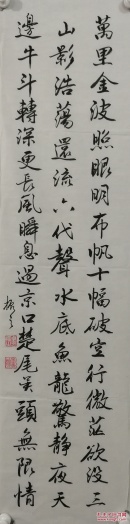 萬里金波照眼明布帆十幅破空行微茫欲沒三
山影浩蕩還流六代聲水底魚龍驚靜夜天
邊牛斗轉深更長風瞬息過京口楚尾吳頭無限情